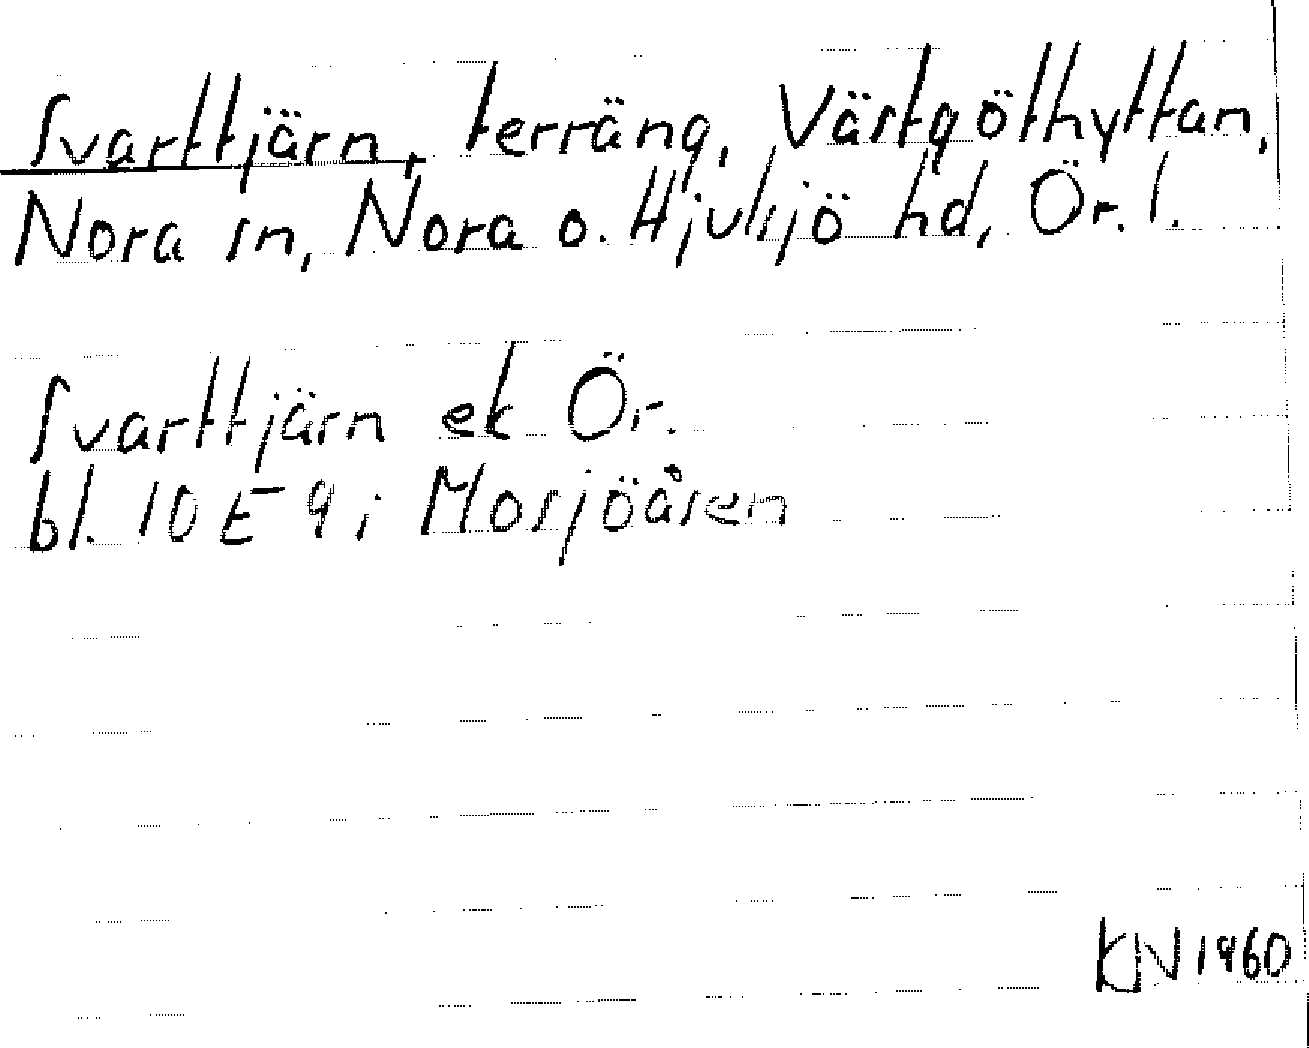 Svarttjärn, terräng, Västgöthyttan,
Nora sn, Nora o. Hjulsjö hd, Ör. l.
Svarttjärn ek Ör.
bl. 10 E 9 i Mosjöåsen
KN 1960